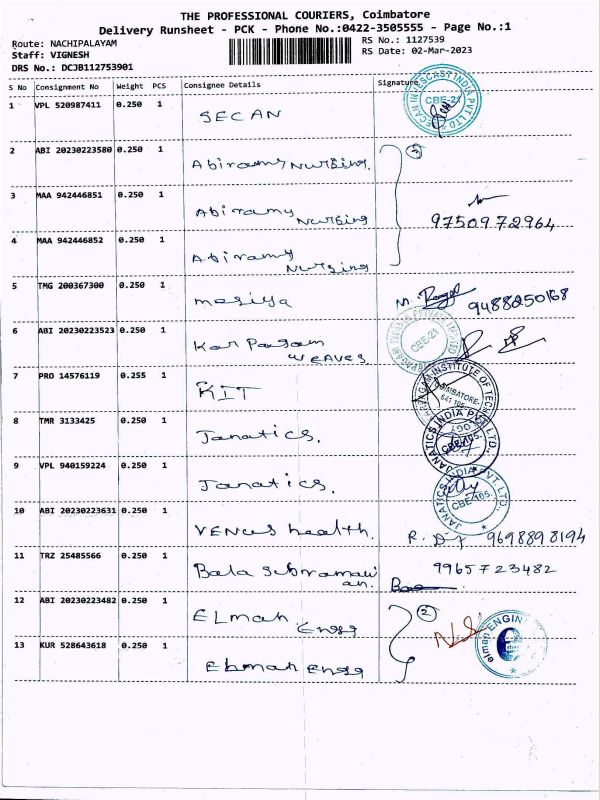 THE PROFESSIONAL COURIERS, Coimbatore
Delivery Runsheet - PCK - Phone No.:0422-3505555 - Page No.:1
Route: NACHIPALAYAM
RS No.: 1127539
Staff: VIGNESH
RS Date: 02-Mar-2023
DRS No.: DCJB112753901
S No Consignment No Weight PCS Consignee Details Signature
1 VPL 520987411 0.250 1 SECAN
CBE-21
2 ABI 20230223580 0.250 1 Abiramy Nursing. 3
3 MAA 942446851 0.250 1 Abiramy Nursing 9750972964
4 MAA 942446852 0.250 1 Abiramy Nursing
5 TMG 200367300 0.250 1 mesiya 9488250168
6 ABI 20230223523 0.250 1 Karpagam WEAVES
CBE-21
7 PRO 14576119 0.255 1 KIT
INSTITUTE OF TECH
COIMBATORE.
641 105.
8 TMR 3133425 0.250 1 Janatics.
JANATICS INDIA PVT. LTD.
9 VPL 940159224 0.250 1 Janatics.
JANATICS INDIA PVT. LTD.
CBE-105.
10 ABI 20230223631 0.250 1 VENUS health. 9698898194
11 TRZ 25485566 0.250 1 Bala Subramani an. 9965723482
12 ABI 20230223482 0.250 1 ELmah Engg 2
elman ENGIN
13 KUR 528643618 0.250 1 Elmah Engg